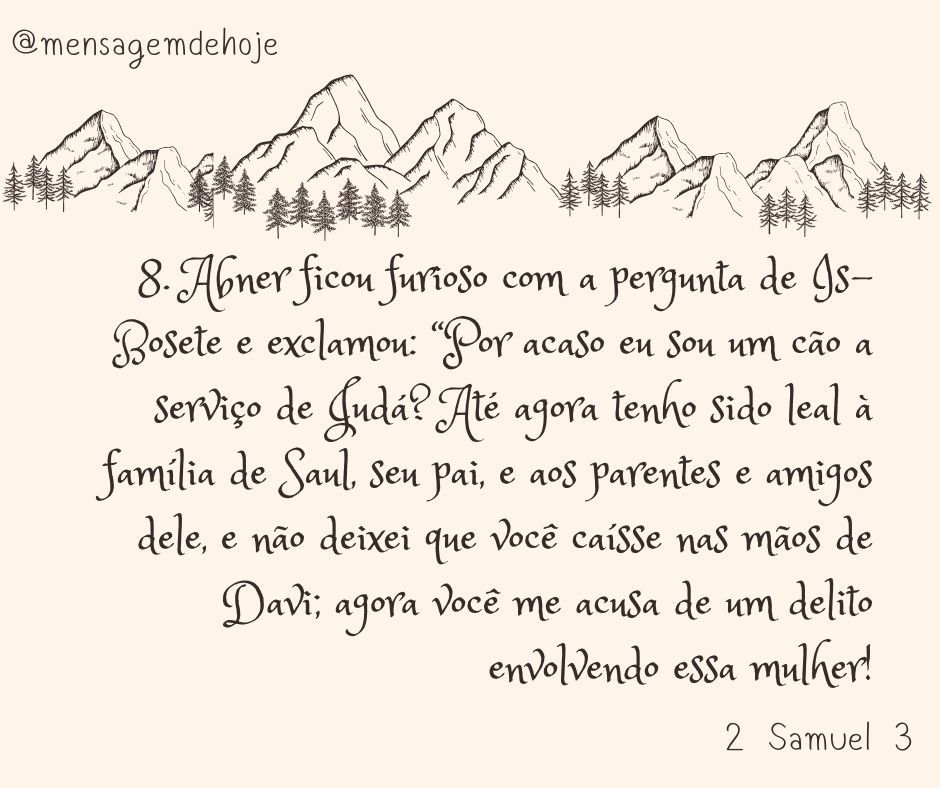 @mensagemdehoje
8. Abner ficou furioso com a pergunta de Is-
Bosete e exclamou: “Por acaso eu sou um cão a
serviço de Judá? Até agora tenho sido leal à
família de Saul, seu pai, e aos parentes e amigos
dele, e não deixei que você caísse nas mãos de
Davi; agora você me acusa de um delito
envolvendo essa mulher!
2 Samuel 3